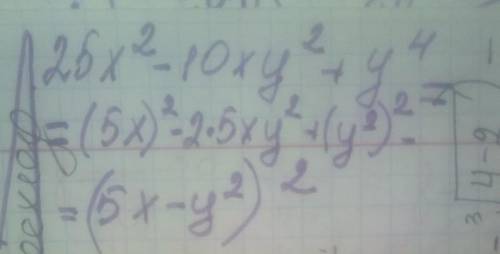 25x² - 10xy² + y⁴
= (5x)² - 2·5xy² + (y²)² =
= (5x - y²)²